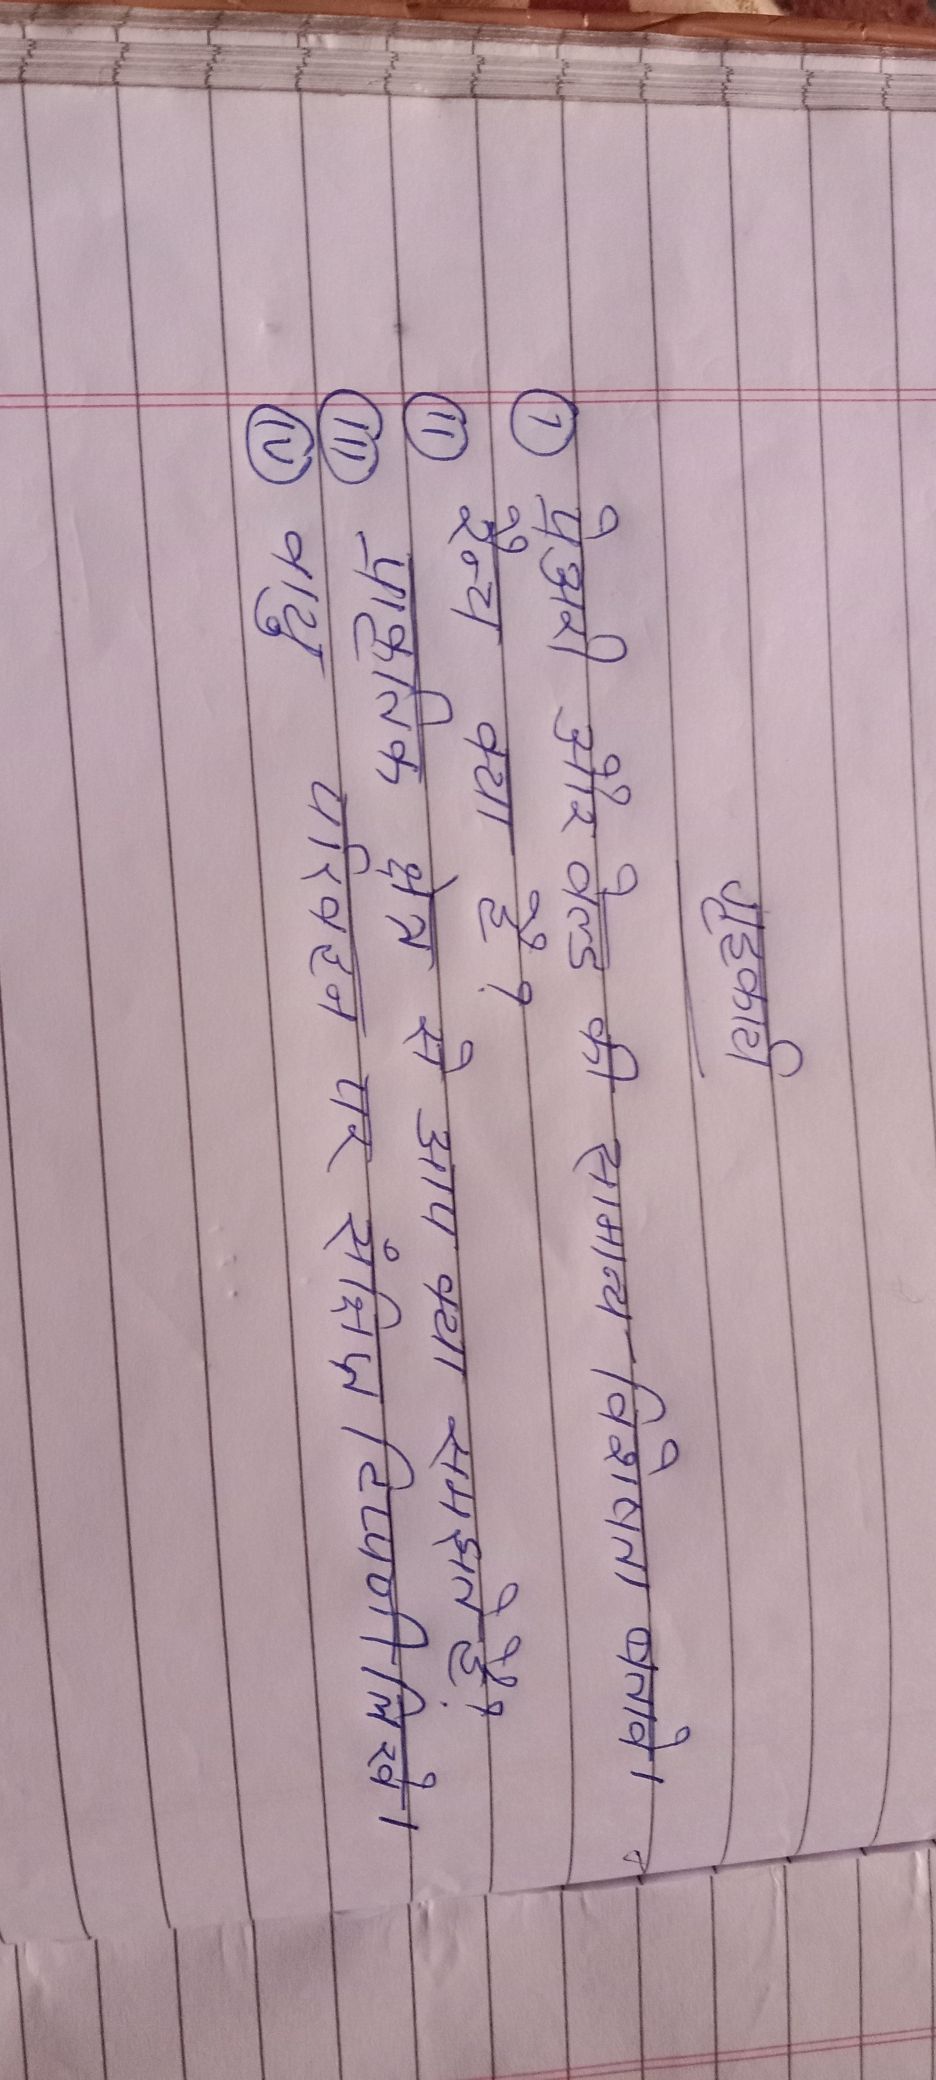 गृहकार्य
① प्रेअरी और वेल्ड की सामान्य विशेषता बतावें।
⑪ रैन्य क्या है ?
⑪⑪ प्राकृतिक क्षेत्र से आप क्या समझते हैं?
ⓘⓥ वायु परिवहन पर संक्षिप्त टिप्पणी लिखें।